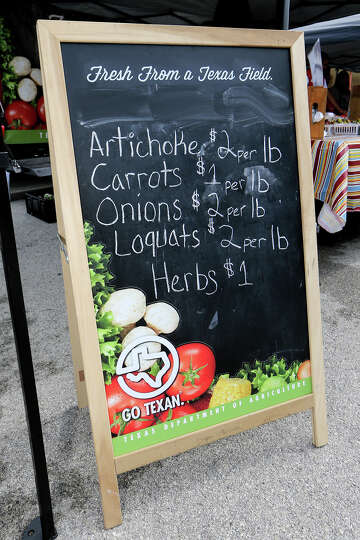 Fresh From a Texas Field.
Artichoke $2 per lb
Carrots $1 per lb
Onions $2 per lb
Loquats $2 per lb
Herbs $1
GO TEXAN.
TEXAS DEPARTMENT OF AGRICULTURE